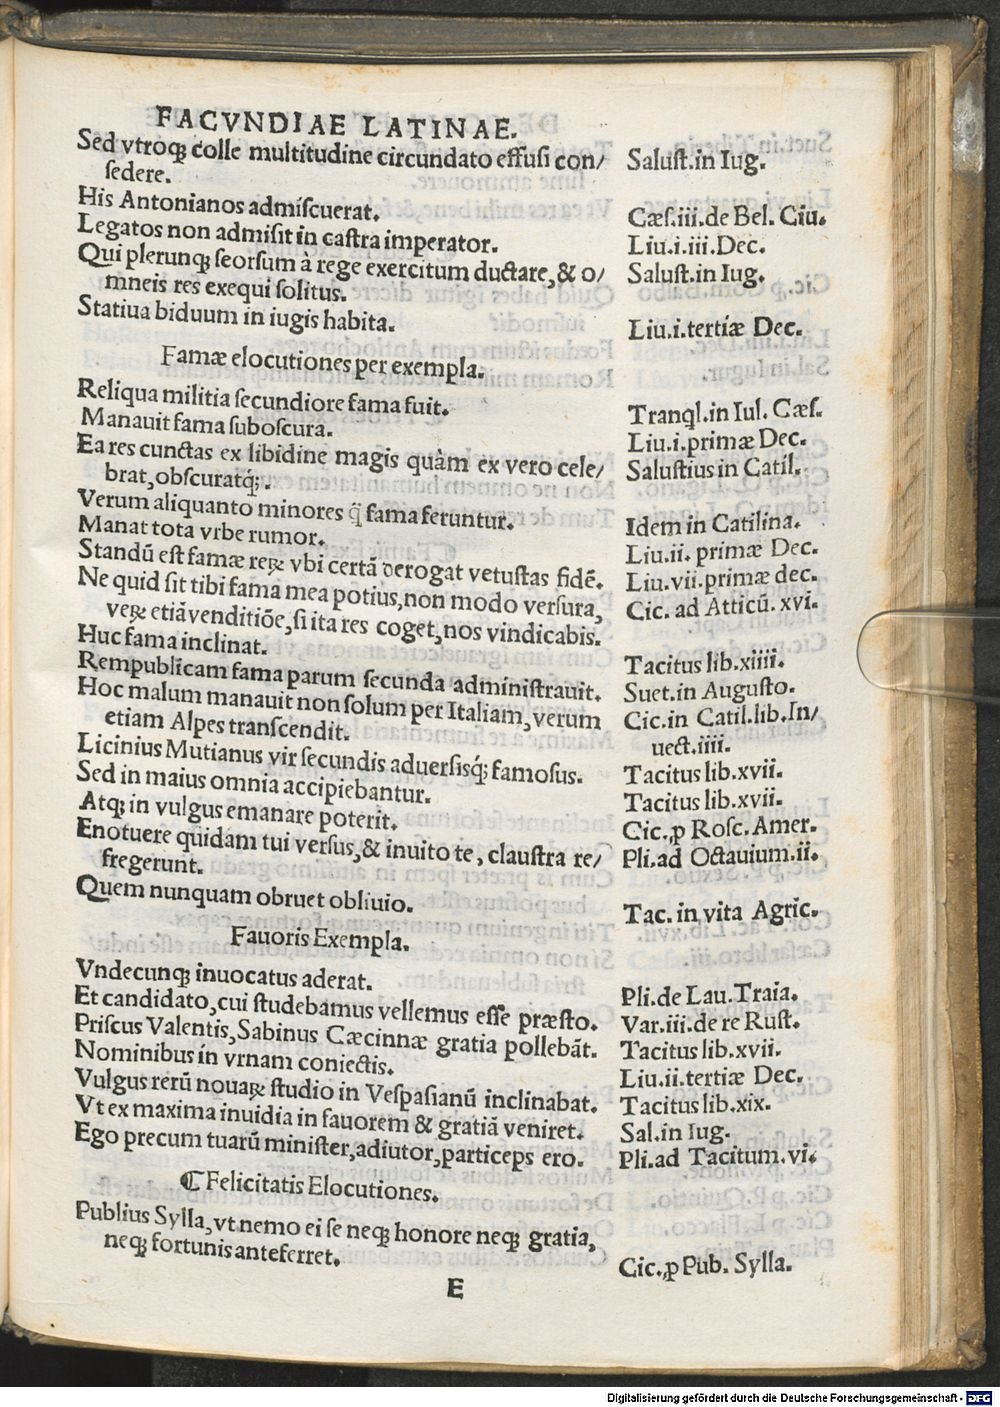 FACVNDIAE LATINAE.
Sed vtroqꝫ colle multitudine circundato effusi con/ Salust.in Iug.
sedere.
His Antonianos admiscuerat. Cæs.iii.de Bel. Ciu.
Legatos non admisit in castra imperator. Liu.i.iii.Dec.
Qui plerunqꝫ seorsum à rege exercitum ductare,& o/ Salust.in Iug.
mneis res exequi solitus.
Statiua biduum in iugis habita. Liu.i.tertiæ Dec.
Famæ elocutiones per exempla.
Reliqua militia secundiore fama fuit. Tranql.in Iul. Cæs.
Manauit fama subobscura. Liu.i.primæ Dec.
Ea res cunctas ex libidine magis quàm ex vero cele/ Salustius in Catil.
brat,obscuratqꝫ.
Verum aliquanto minores q̃ fama feruntur. Idem in Catilina.
Manat tota vrbe rumor. Liu.ii. primæ Dec.
Standū est famæ reꝝ vbi certā derogat vetustas fidē. Liu.vii.primæ dec.
Ne quid sit tibi fama mea potius,non modo versura, Cic. ad Atticū. xvi.
veꝝ etiā venditiōe,si ita res coget,nos vindicabis.
Huc fama inclinat. Tacitus lib.xiiii.
Rempublicam fama parum secunda administrauit. Suet.in Augusto.
Hoc malum manauit non solum per Italiam,verum Cic.in Catil.lib.In/
etiam Alpes transcendit. uect.iiii.
Licinius Mutianus vir secundis aduersisqꝫ famosus. Tacitus lib.xvii.
Sed in maius omnia accipiebantur. Tacitus lib.xvii.
Atqꝫ in vulgus emanare poterit. Cic.,ꝓ Rosc.Amer.
Enotuere quidam tui versus,& inuito te, claustra re/ Pli.ad Octauium.ii.
fregerunt.
Quem nunquam obruet obliuio. Tac. in vita Agric.
Fauoris Exempla.
Vndecunqꝫ inuocatus aderat. Pli.de Lau.Traia.
Et candidato,cui studebamus vellemus esse præsto. Var.iii.de re Rust.
Priscus Valentis,Sabinus Cæcinnæ gratia pollebāt. Tacitus lib.xvii.
Nominibus in vrnam coniectis. Liu.ii.tertiæ Dec.
Vulgus rerū nouaꝝ studio in Vespasianū inclinabat. Tacitus lib.xix.
Vt ex maxima inuidia in fauorem & gratiā veniret. Sal.in Iug.
Ego precum tuarū minister,adiutor,particeps ero. Pli.ad Tacitum.vi.
⸿ Felicitatis Elocutiones.
Publius Sylla,vt nemo ei se neqꝫ honore neqꝫ gratia,
neqꝫ fortunis anteferret. Cic.,ꝓ Pub. Sylla.
E
Digitalisierung gefördert durch die Deutsche Forschungsgemeinschaft - DFG